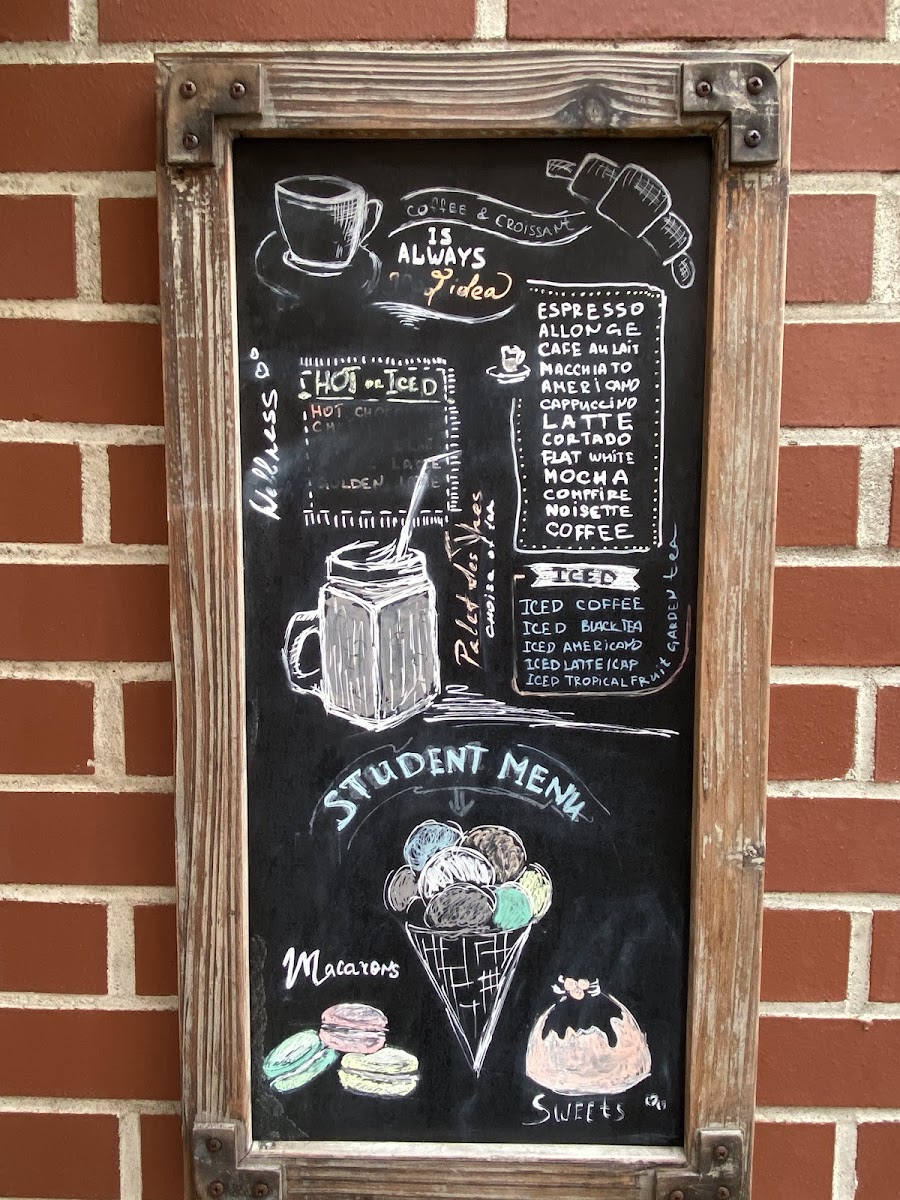 COFFEE & CROISSANT
IS
ALWAYS
idea
ESPRESSO
ALLONGE
CAFE AU LAIT
MACCHIATO
AMERICANO
CAPPUCCINO
LATTE
CORTADO
FLAT WHITE
MOCHA
COMPFIRE
NOISETTE
COFFEE
HOT OR ICED
HOT
LATTE
Wellness
Palet des Thes
choise of tea
ICED
ICED COFFEE
ICED BLACK TEA
ICED AMERICANO
ICED LATTE/CAP
ICED TROPICAL FRuit GARDEN tea
STUDENT MENU
Macarons
SWEETS